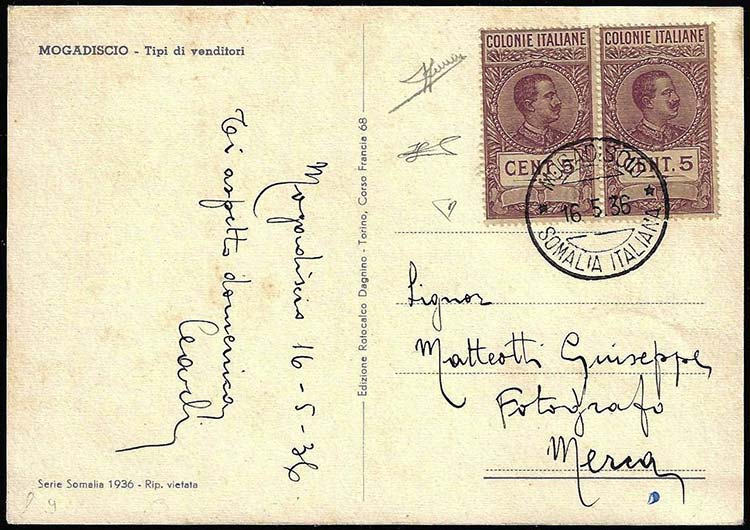 MOGADISCIO - Tipi di venditori
COLONIE ITALIANE
CENT. 5
COLONIE ITALIANE
CENT. 5
MOGADISCIO
16 5 36
SOMALIA ITALIANA
Mogadiscio 16-5-36
Ti aspetto domenica
Edizione Rotocalco Dagnino - Torino, Corso Francia 68
Signor
Matteotti Giuseppe
Fotografo
Merca
Serie Somalia 1936 - Rip. vietata